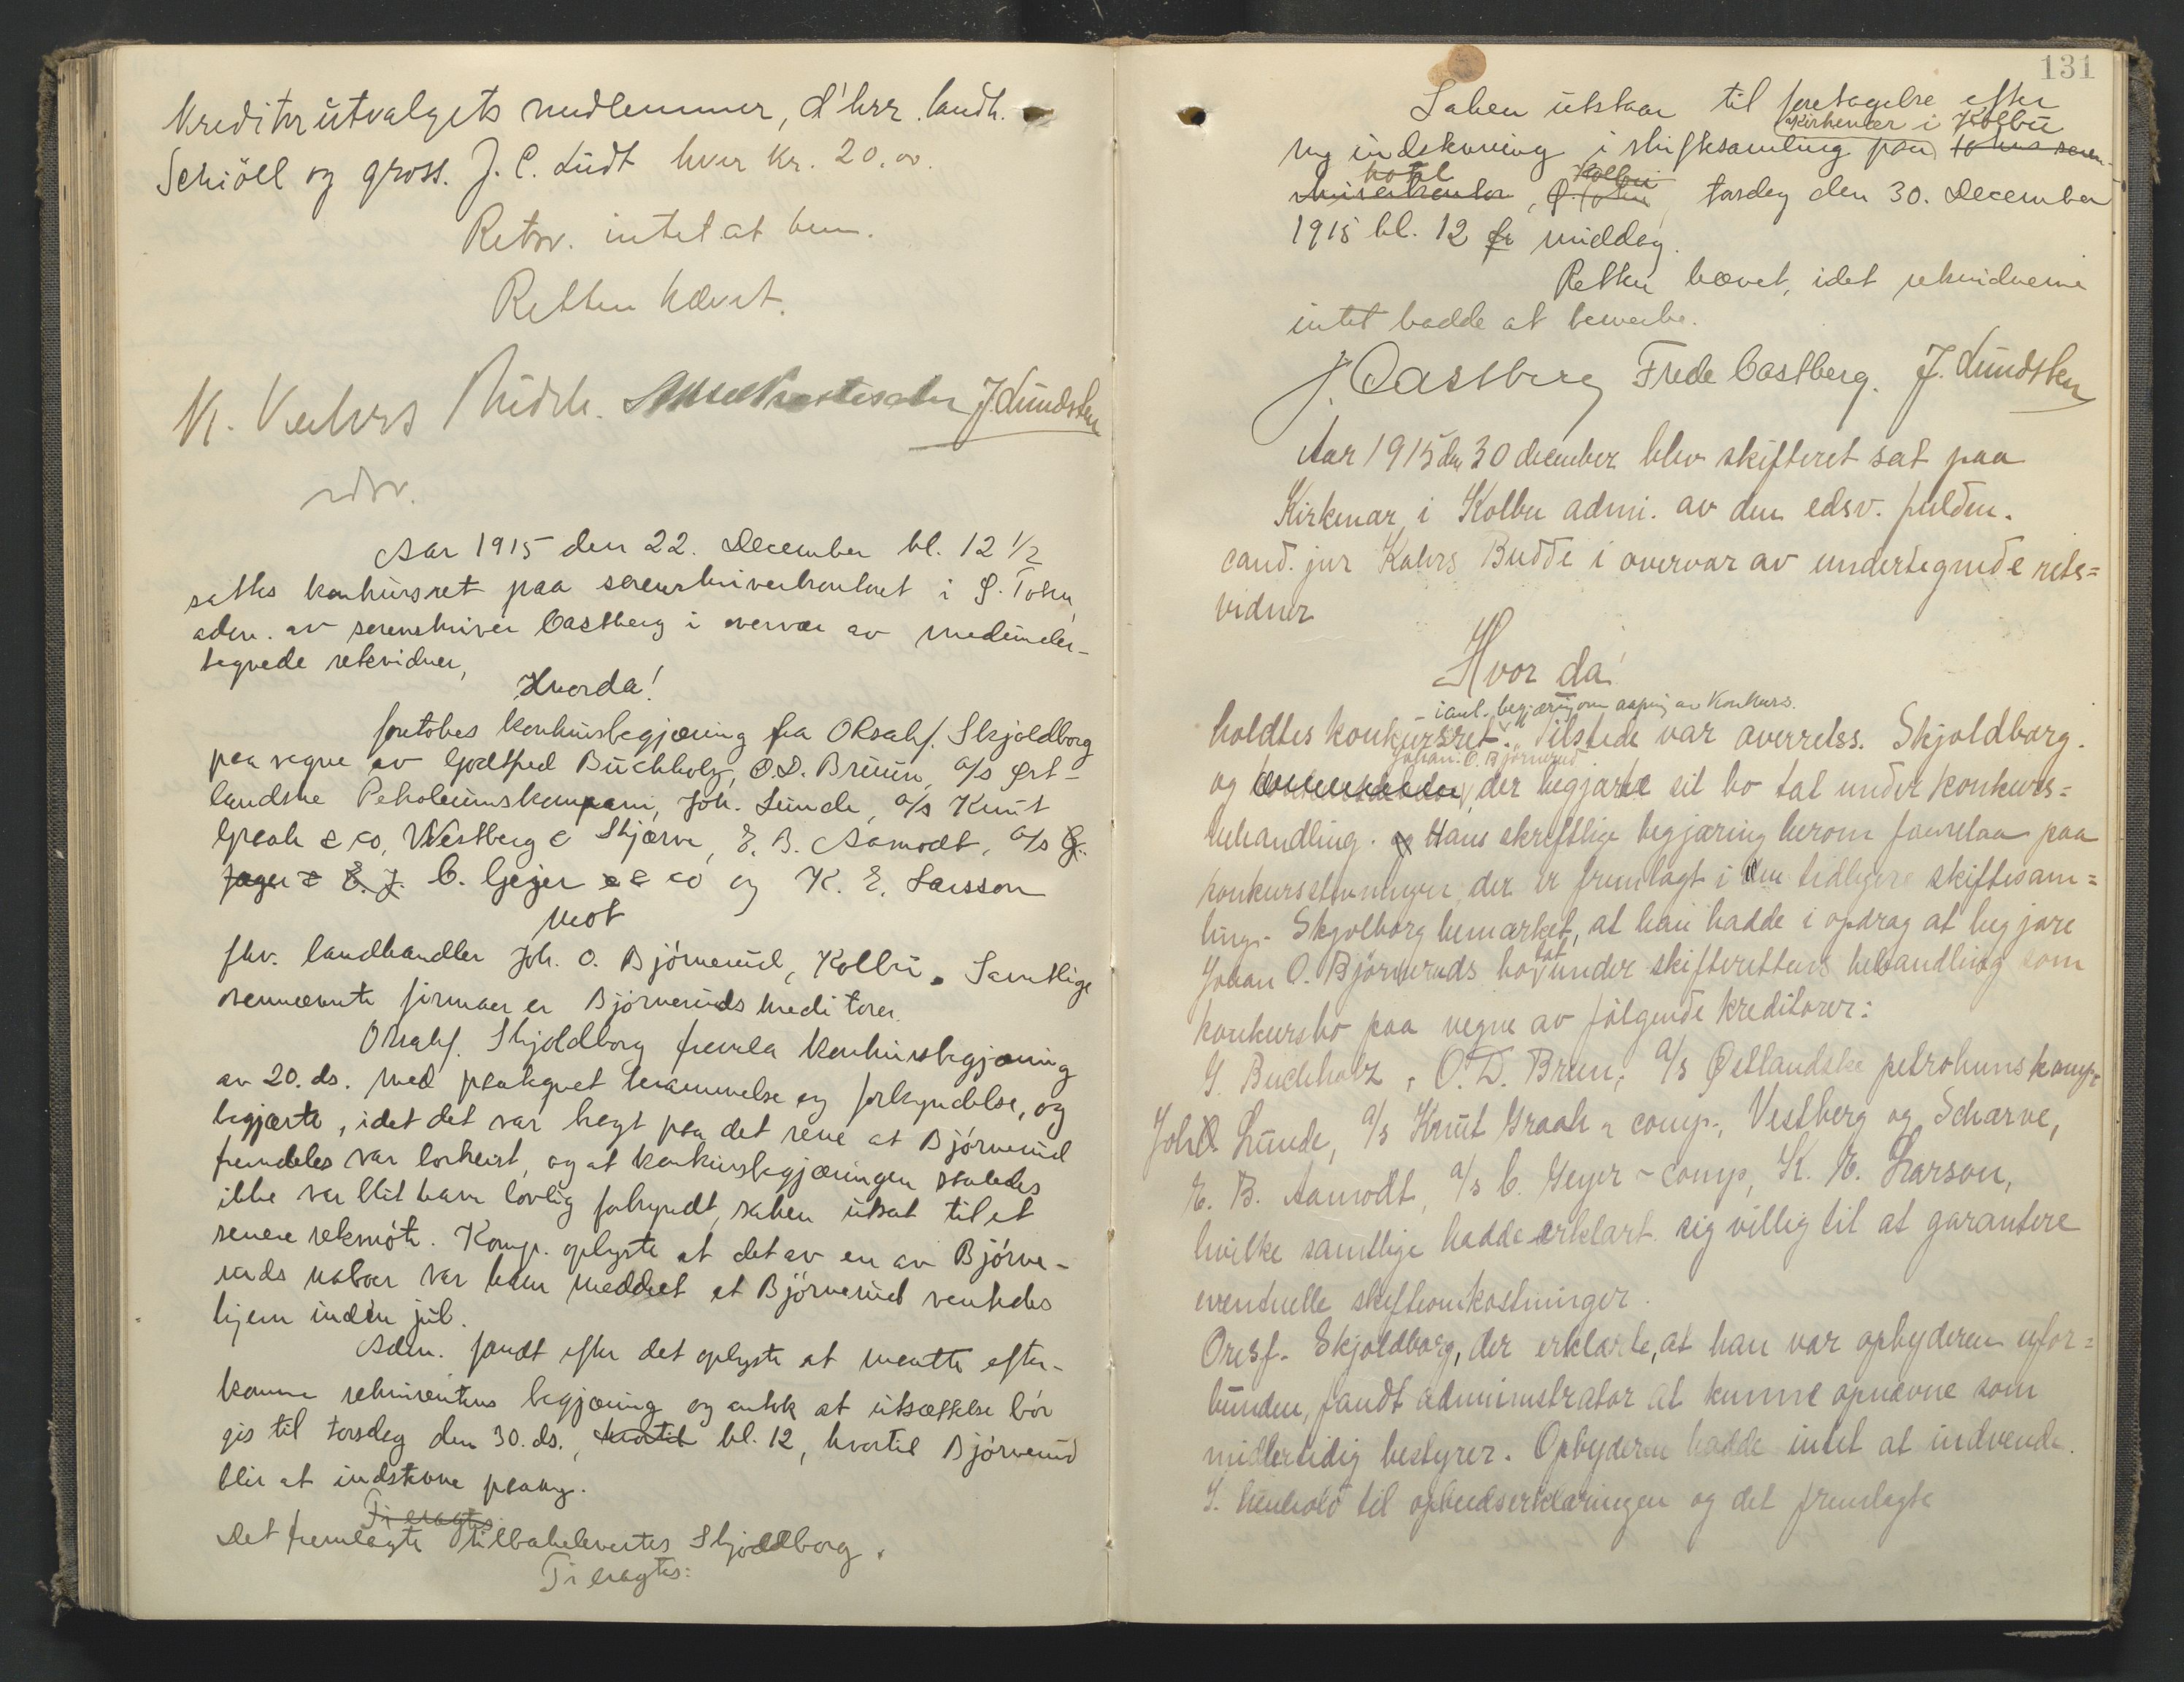 Kreditorutvalgets medlemmer, d'hrr. landh.
Schiöll og gross. J. C. Ludt hver Kr. 20.00.
Retsv. intet at bem.
Retten hævet.
K. Kahrs Budde. J. Lundsten
edsv.
Aar 1915 den 22. December kl. 12 1/2
sattes konkursret paa sorenskriverkontoret i Ø. Toten,
adm. av sorenskriver Castberg i overvær av medunder-
tegnede retsvidner,
Hvorda!
foretokes konkursbegjæring fra ORsakf. Skjoldborg
paa vegne av Godtfred Buchholz, O.D. Bruun, a/s Øst-
landske Petroleumskompani, Joh. Lunde, a/s Knut
Graah & co, Westberg & Skjærve, E. B. Aamodt, a/s G.
Jager & E. J. C. Geijer & co og K. E. Larsson
mot
fhv. landhandler Joh. O. Bjørnerud, Kolbu. Samtlige
ovennævnte firmaer er Bjørneruds kreditorer.
ORsakf. Skjoldborg fremla konkursbegjæring
av 20. ds. med paategnet berammelse og forkyndelse, og
begjærte, idet det var bragt paa det rene at Bjørnerud
fremdeles var bortreist, og at konkursbegjæringen saaledes
ikke var blit ham lovlig forkyndt, saken utsat til et
senere retsmøte. Komp. oplyste at det av en av Bjørne-
ruds naboer var ham meddelt at Bjørnerud ventedes
hjem inden jul.
Adm. fandt efter det oplyste at maatte efter-
komme rekvirentens begjæring og antok at utsættelse bør
gis til torsdag den 30. ds., hvortil kl. 12, hvortil Bjørnerud
blir at indstevne paany.
Ti eragtes
Det fremlagte tilbakelevertes Skjoldborg.
Ti eragtes:
131
Saken utstaar til foretagelse efter
Kirkenær i Kolbu
ny indstevning i skiftesamling paa Totens soren-
hotel Kolbu
skriverkontor, Ø. Toten, torsdag den 30. December
1915 kl. 12 fr middag.
Retten hævet, idet retsvidnerne
intet hadde at bemerke.
J. Castberg Frede Castberg. J. Lundsten
Aar 1915 den 30 december blev skifteret sat paa
Kirkenær i Kolbu adm. av den edsv. fuldm.
cand. jur Kahrs Budde i overvær av undertegnede rets=
vidner
Hvor da!
- i anl. begjæring om aapning av Konkurs.
holdtes konkursret. Tilstede var overretss. Skjoldborg.
Johan O. Bjørnerud
og der begjærte sit bo tat under konkurs=
behandling. og Hans skriftlige begjæring herom forelaa paa
konkursstevningen, der er fremlagt i den tidligere skiftesam=
ling. Skjolborg bemærket, at han hadde i opdrag at begjære
tat
Johan O. Bjørneruds bo under skifterettens behandling som
konkursbo paa vegne av følgende kreditorer:
G. Buchholz, O. D. Brun, a/s Østlandske petroleumskomp.
Joh. Lunde, a/s Knut Graah & comp., Vestberg og Scharve,
E. B. Aamodt, a/s C. Geyer & comp, K. E. Larson,
hvilke samtlige hadde erklært sig villig til at garantere
eventuelle skifteomkostninger.
Oresf. Skjoldborg, der erklærte, at han var opbyderen ufor=
bunden, fandt administrator at kunne opnævne som
midlertidig bestyrer. Opbyderen hadde intet at indvende.
I henhold til opbudserklæringen og det fremlagte